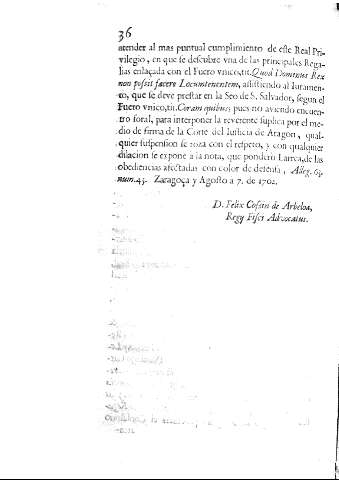 36
atender al mas puntual cumplimiento de este Real Pri-
vilegio, en que se descubre vna de las principales Rega-
lias enlaçada con el Fuero vnico, tit. Quod Dominus Rex
non possit facere Locumtenentem, assistiendo al Iuramen-
to, que se deve prestar en la Seo de S. Salvador, segun el
Fuero vnico, tit. Coram quibus; pues no aviendo encuen-
tro foral, para interponer la reverente suplica por el me-
dio de firma de la Corte del Iusticia de Aragon, qual-
quier suspension se roza con el respeto, y con qualquier
dilacion se expone a la nota, que ponderò Larrea, de las
obediencias afectadas con color de defensa, Alleg. 63.
num. 45. Zaragoça y Agosto a 7. de 1702.
D. Felix Cossin de Arbeloa,
Regij Fisci Advocatus.